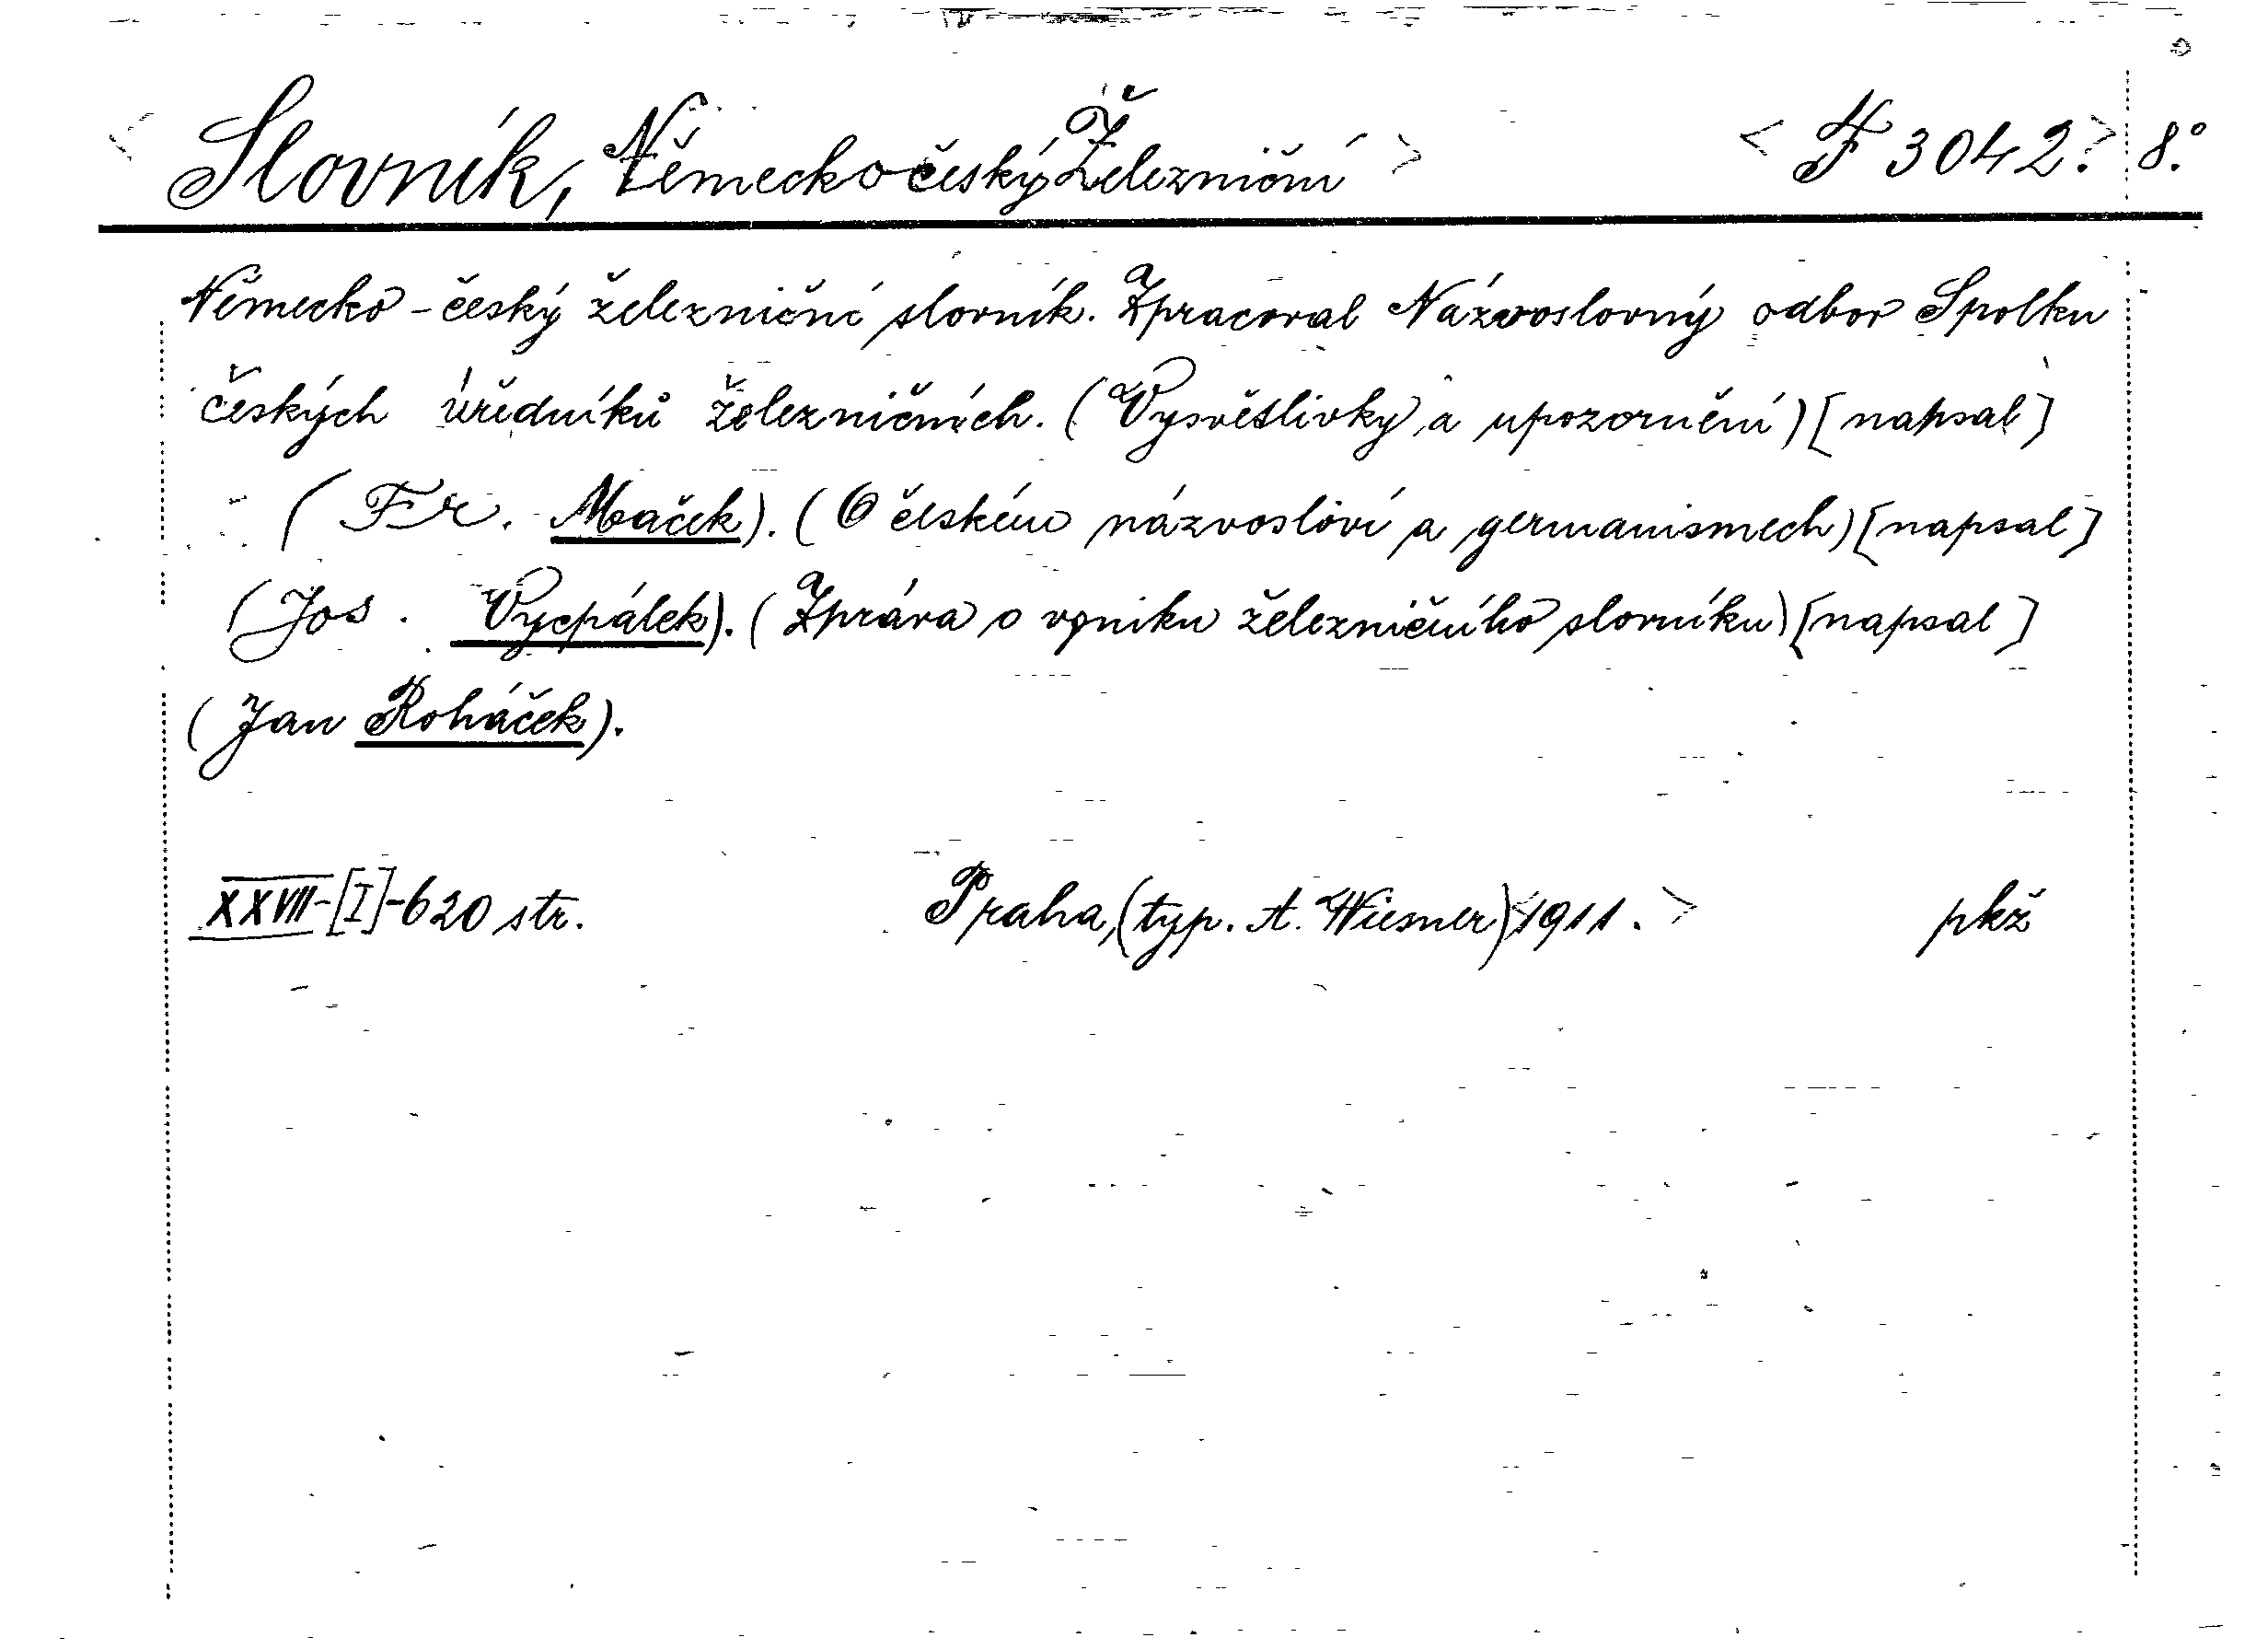 < Slovník, Německočeský Železniční > < F 3042. > 8°.
Německo-český železniční slovník. Zpracoval Názvoslovný odbor Spolku
českých úředníků železničních. (Vysvětlivky a upozornění) [napsal]
(Fr. Maček). (O českém názvosloví a germanismech) [napsal]
(Jos. Vycpálek). (Zpráva o vzniku železničního slovníku) [napsal]
(Jan Roháček).
XXVII-[I]-620 str. Praha, (typ. A. Wiesner) <1911. > pkž